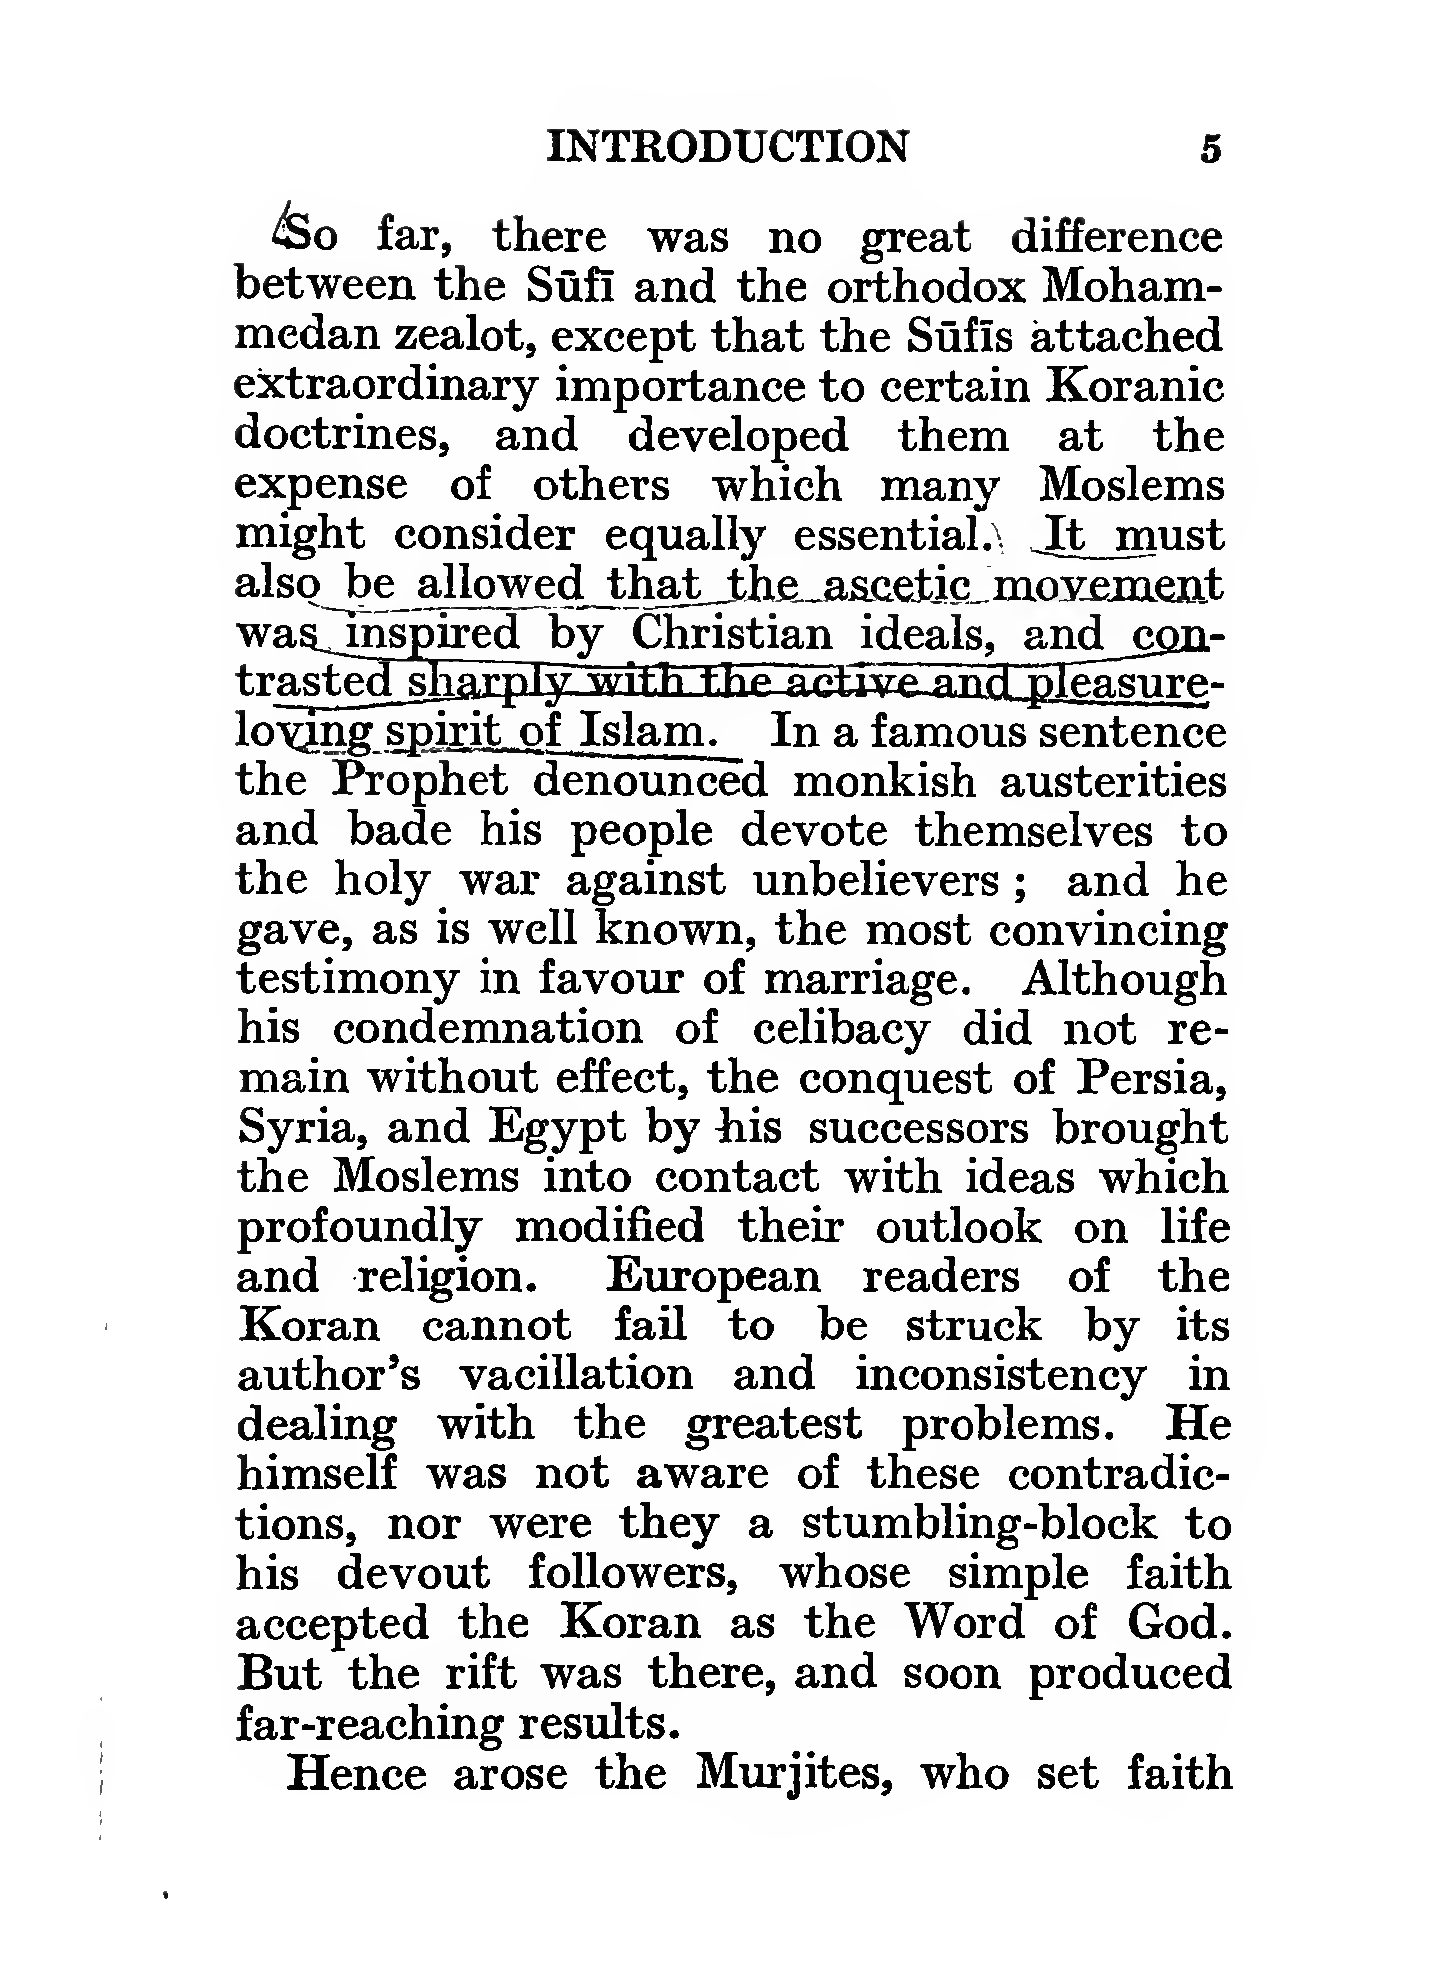 INTRODUCTION 5
So far, there was no great difference
between the Sūfī and the orthodox Moham-
medan zealot, except that the Sūfīs attached
extraordinary importance to certain Koranic
doctrines, and developed them at the
expense of others which many Moslems
might consider equally essential. It must
also be allowed that the ascetic movement
was inspired by Christian ideals, and con-
trasted sharply with the active and pleasure-
loving spirit of Islam. In a famous sentence
the Prophet denounced monkish austerities
and bade his people devote themselves to
the holy war against unbelievers ; and he
gave, as is well known, the most convincing
testimony in favour of marriage. Although
his condemnation of celibacy did not re-
main without effect, the conquest of Persia,
Syria, and Egypt by his successors brought
the Moslems into contact with ideas which
profoundly modified their outlook on life
and religion. European readers of the
Koran cannot fail to be struck by its
author's vacillation and inconsistency in
dealing with the greatest problems. He
himself was not aware of these contradic-
tions, nor were they a stumbling-block to
his devout followers, whose simple faith
accepted the Koran as the Word of God.
But the rift was there, and soon produced
far-reaching results.
Hence arose the Murjites, who set faith